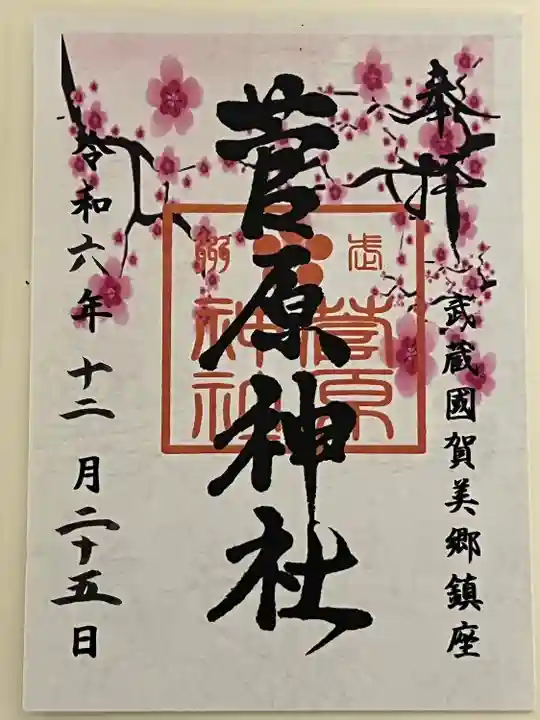 奉拝
武蔵國賀美郷鎮座
菅原神社
菅原
神社
令和六年十二月二十五日